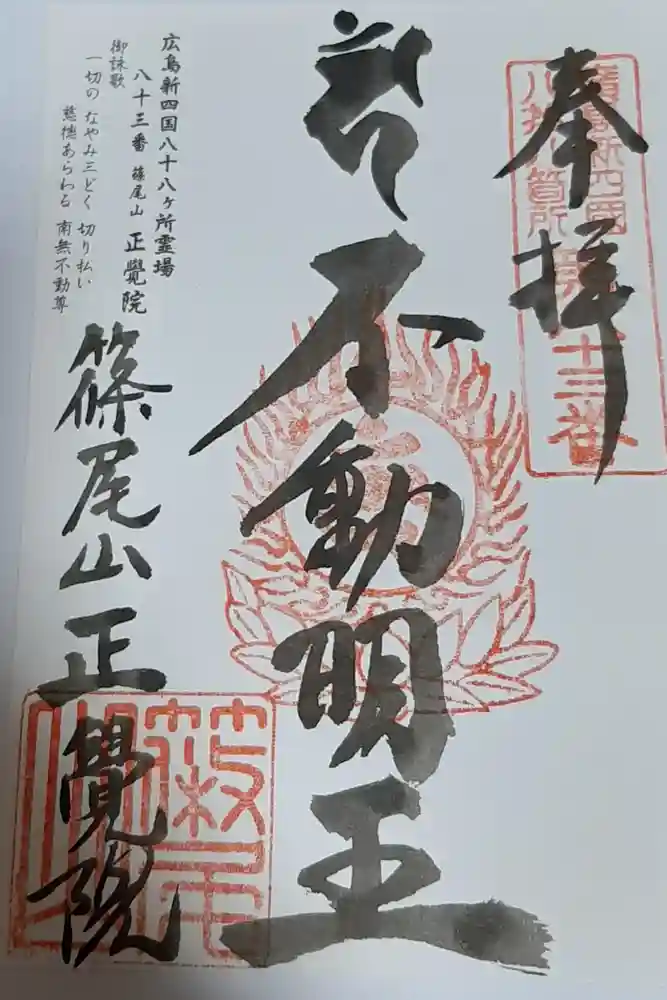 奉拝
廣島新四國
八拾八箇所
第八十三番
不動明王
篠尾山正覺院
広島新四国八十八ヶ所霊場
八十三番 篠尾山 正覺院
御詠歌
一切の なやみ三どく 切り払い
慈徳あらわる 南無不動尊